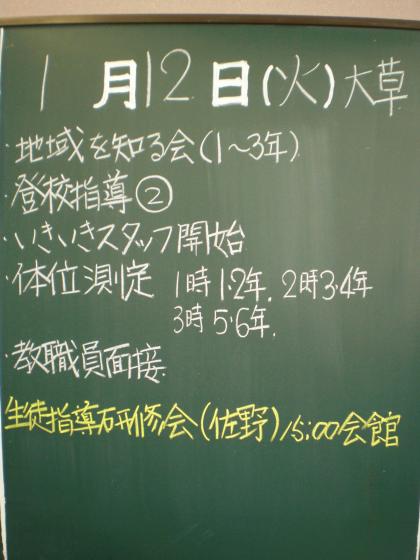 1月12日(火)大草
・地域を知る会(1〜3年)
・登校指導②
・いきいきスタッフ開始
・体位測定 1時1・2年. 2時3・4年
3時5・6年.
・教職員面接
生徒指導研修会(佐野)15:00会館